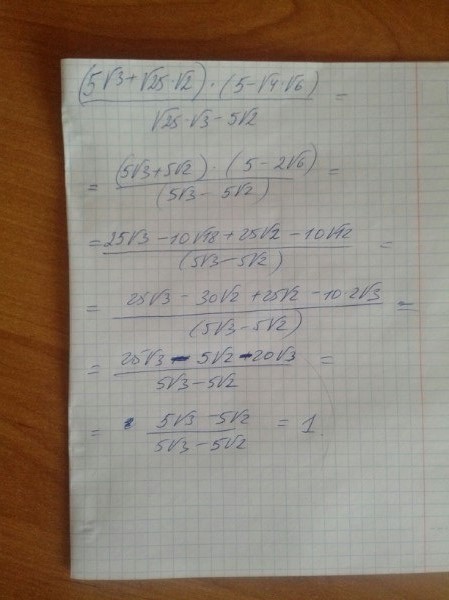 (5√3+√25·√2)·(5-√4·√6) =
√25·√3-5√2
= (5√3+5√2)·(5-2√6) =
(5√3-5√2)
= 25√3-10√18+25√2-10√12 =
(5√3-5√2)
= 25√3-30√2+25√2-10·2√3 =
(5√3-5√2)
= 25√3-5√2-20√3 =
5√3-5√2
= 5√3-5√2 = 1
5√3-5√2